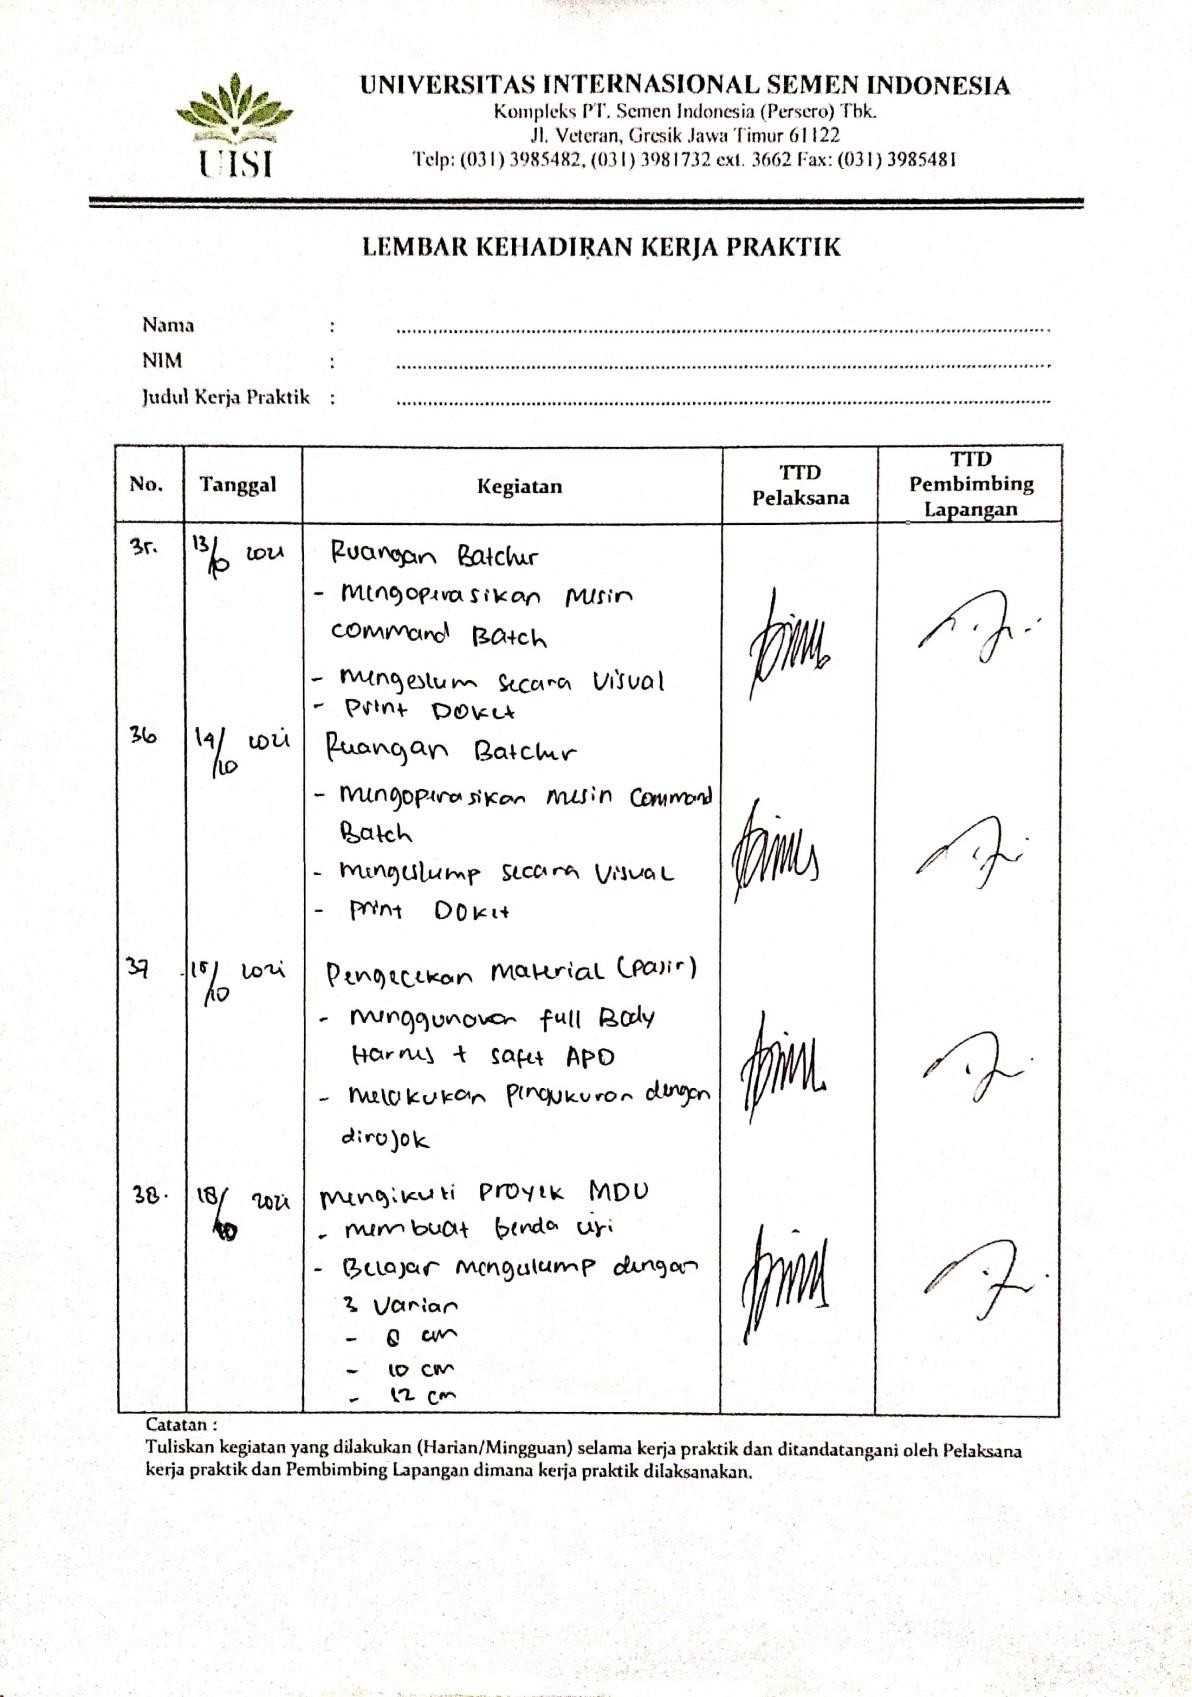 UISI
UNIVERSITAS INTERNASIONAL SEMEN INDONESIA
Kompleks PT. Semen Indonesia (Persero) Tbk.
Jl. Veteran, Gresik Jawa Timur 61122
Telp: (031) 3985482, (031) 3981732 ext. 3662 Fax: (031) 3985481
LEMBAR KEHADIRAN KERJA PRAKTIK
Nama :
NIM :
Judul Kerja Praktik :
No. Tanggal Kegiatan TTD Pelaksana TTD Pembimbing Lapangan
35. 13/10 2021 Ruangan Batcher
- Mengoperasikan Mesin
command Batch
- Mengeslum secara Visual
- Print Doket
36 14/10 2021 Ruangan Batcher
- Mengoperasikan Mesin Command
Batch
- Mengeslump secara Visual
- Print Doket
37 15/10 2021 Pengecekan Material (Pasir)
- Menggunakan full Body
Harnes + safet APD
- Melakukan Pengukuran dengan
dirojok
38. 18/10 2021 Mengikuti Proyek MDU
- Membuat benda uji
- Belajar Mengeslump dengan
3 Varian
- 8 cm
- 10 cm
- 12 cm
Catatan :
Tuliskan kegiatan yang dilakukan (Harian/Mingguan) selama kerja praktik dan ditandatangani oleh Pelaksana
kerja praktik dan Pembimbing Lapangan dimana kerja praktik dilaksanakan.